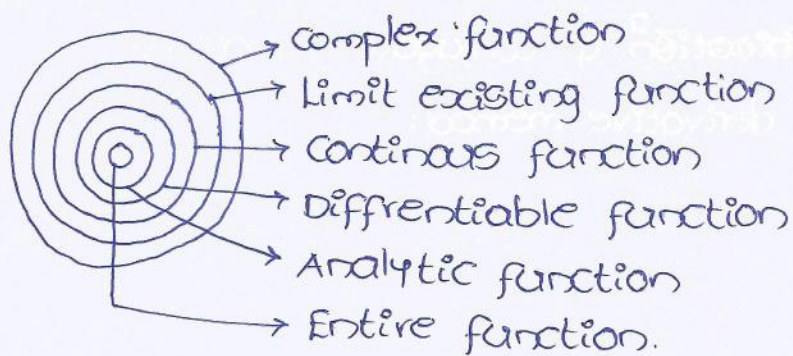 Complex function
Limit existing function
Continous function
Diffrentiable function
Analytic function
Entire function.